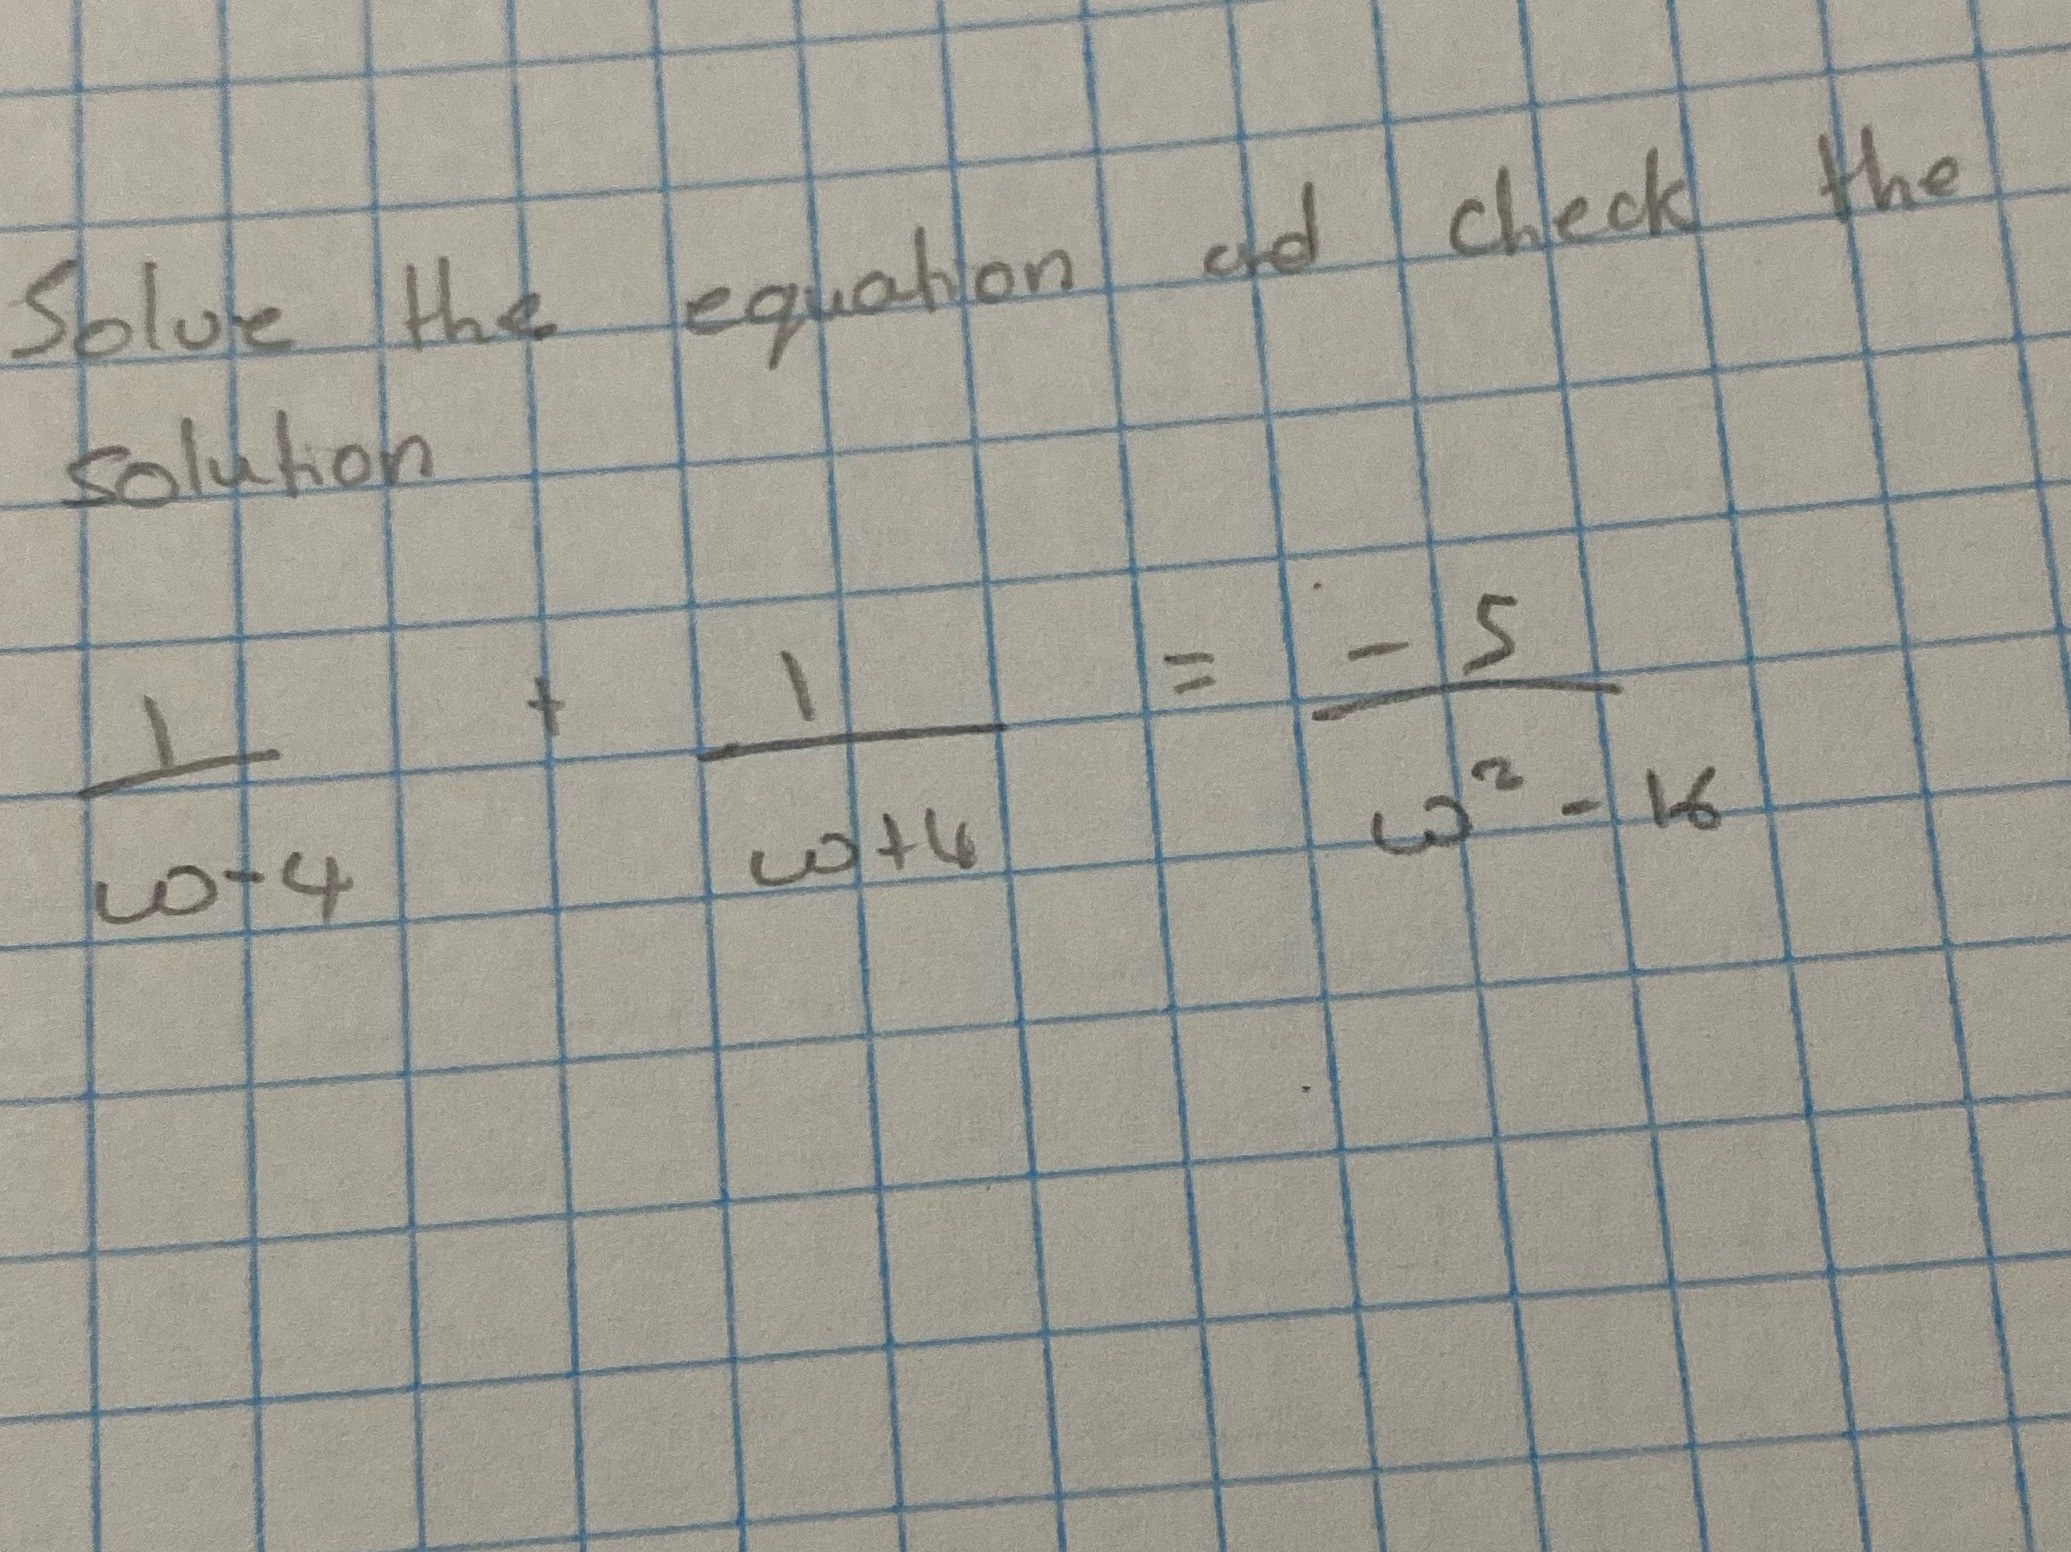 Solve the equation and check the
solution
1/(w-4) + 1/(w+4) = -5/(w²-16)